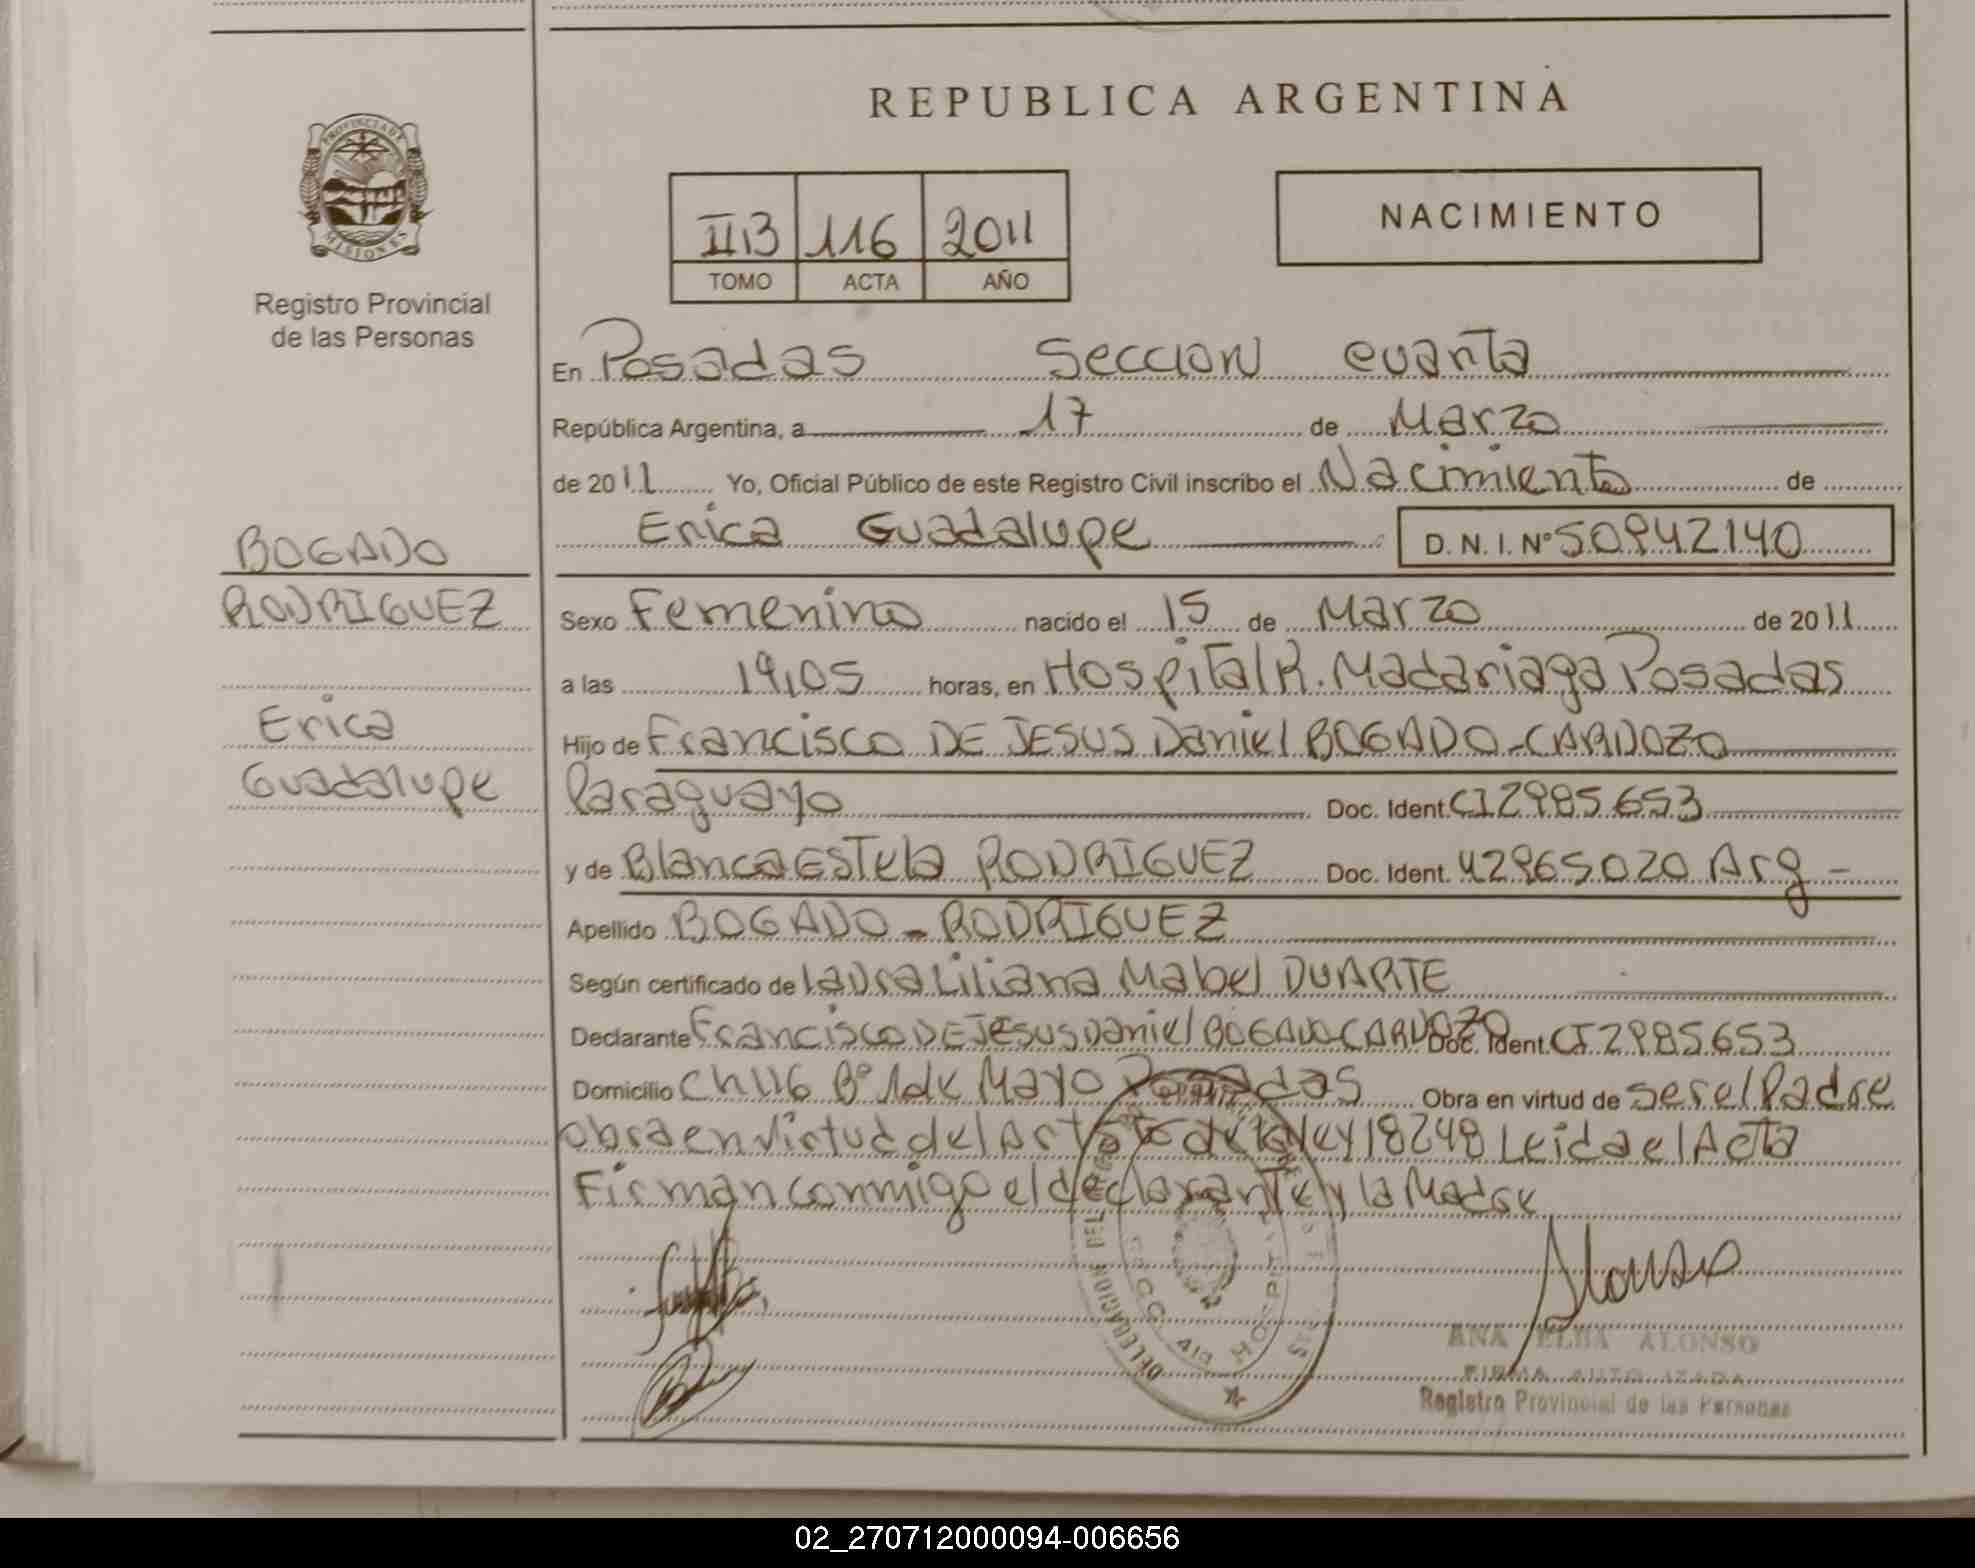 REPUBLICA ARGENTINA
PROVINCIA DE
MISIONES
Registro Provincial
de las Personas
IIB 116 2011
TOMO ACTA AÑO
NACIMIENTO
En Posadas Seccion cuarta
República Argentina, a 17 de Marzo
de 2011 Yo, Oficial Público de este Registro Civil inscribo el Nacimiento de
Erica Guadalupe D. N. I. Nº 50942140
BOGADO
RODRIGUEZ
Erica
Guadalupe
Sexo Femenino nacido el 15 de Marzo de 2011
a las 19,05 horas, en Hospital R. Madariaga Posadas
Hijo de Francisco DE JESUS Daniel BOGADO-CARDOZO
Paraguayo Doc. Ident. CI 2985.653
y de Blanca EStela RODRIGUEZ Doc. Ident. 42965020 Arg -
Apellido BOGADO - RODRIGUEZ
Según certificado de Laura Liliana Mabel DUARTE
Declarante Francisco DE JESUS Daniel BOGADO CARDOZO Doc. Ident. CI 2985.653
Domicilio CH 116 Bº 1 de Mayo Posadas Obra en virtud de ser el Padre
obra en virtud del Art de la ley 18248 Leida el Acta
Firman conmigo el declarante y la Madre
DELEGACION DEL
SECC. 4ta HOSPITAL
Alonso
ANA ELBA ALONSO
FIRMA AUTORIZADA
Registro Provincial de las Personas
02_270712000094-006656